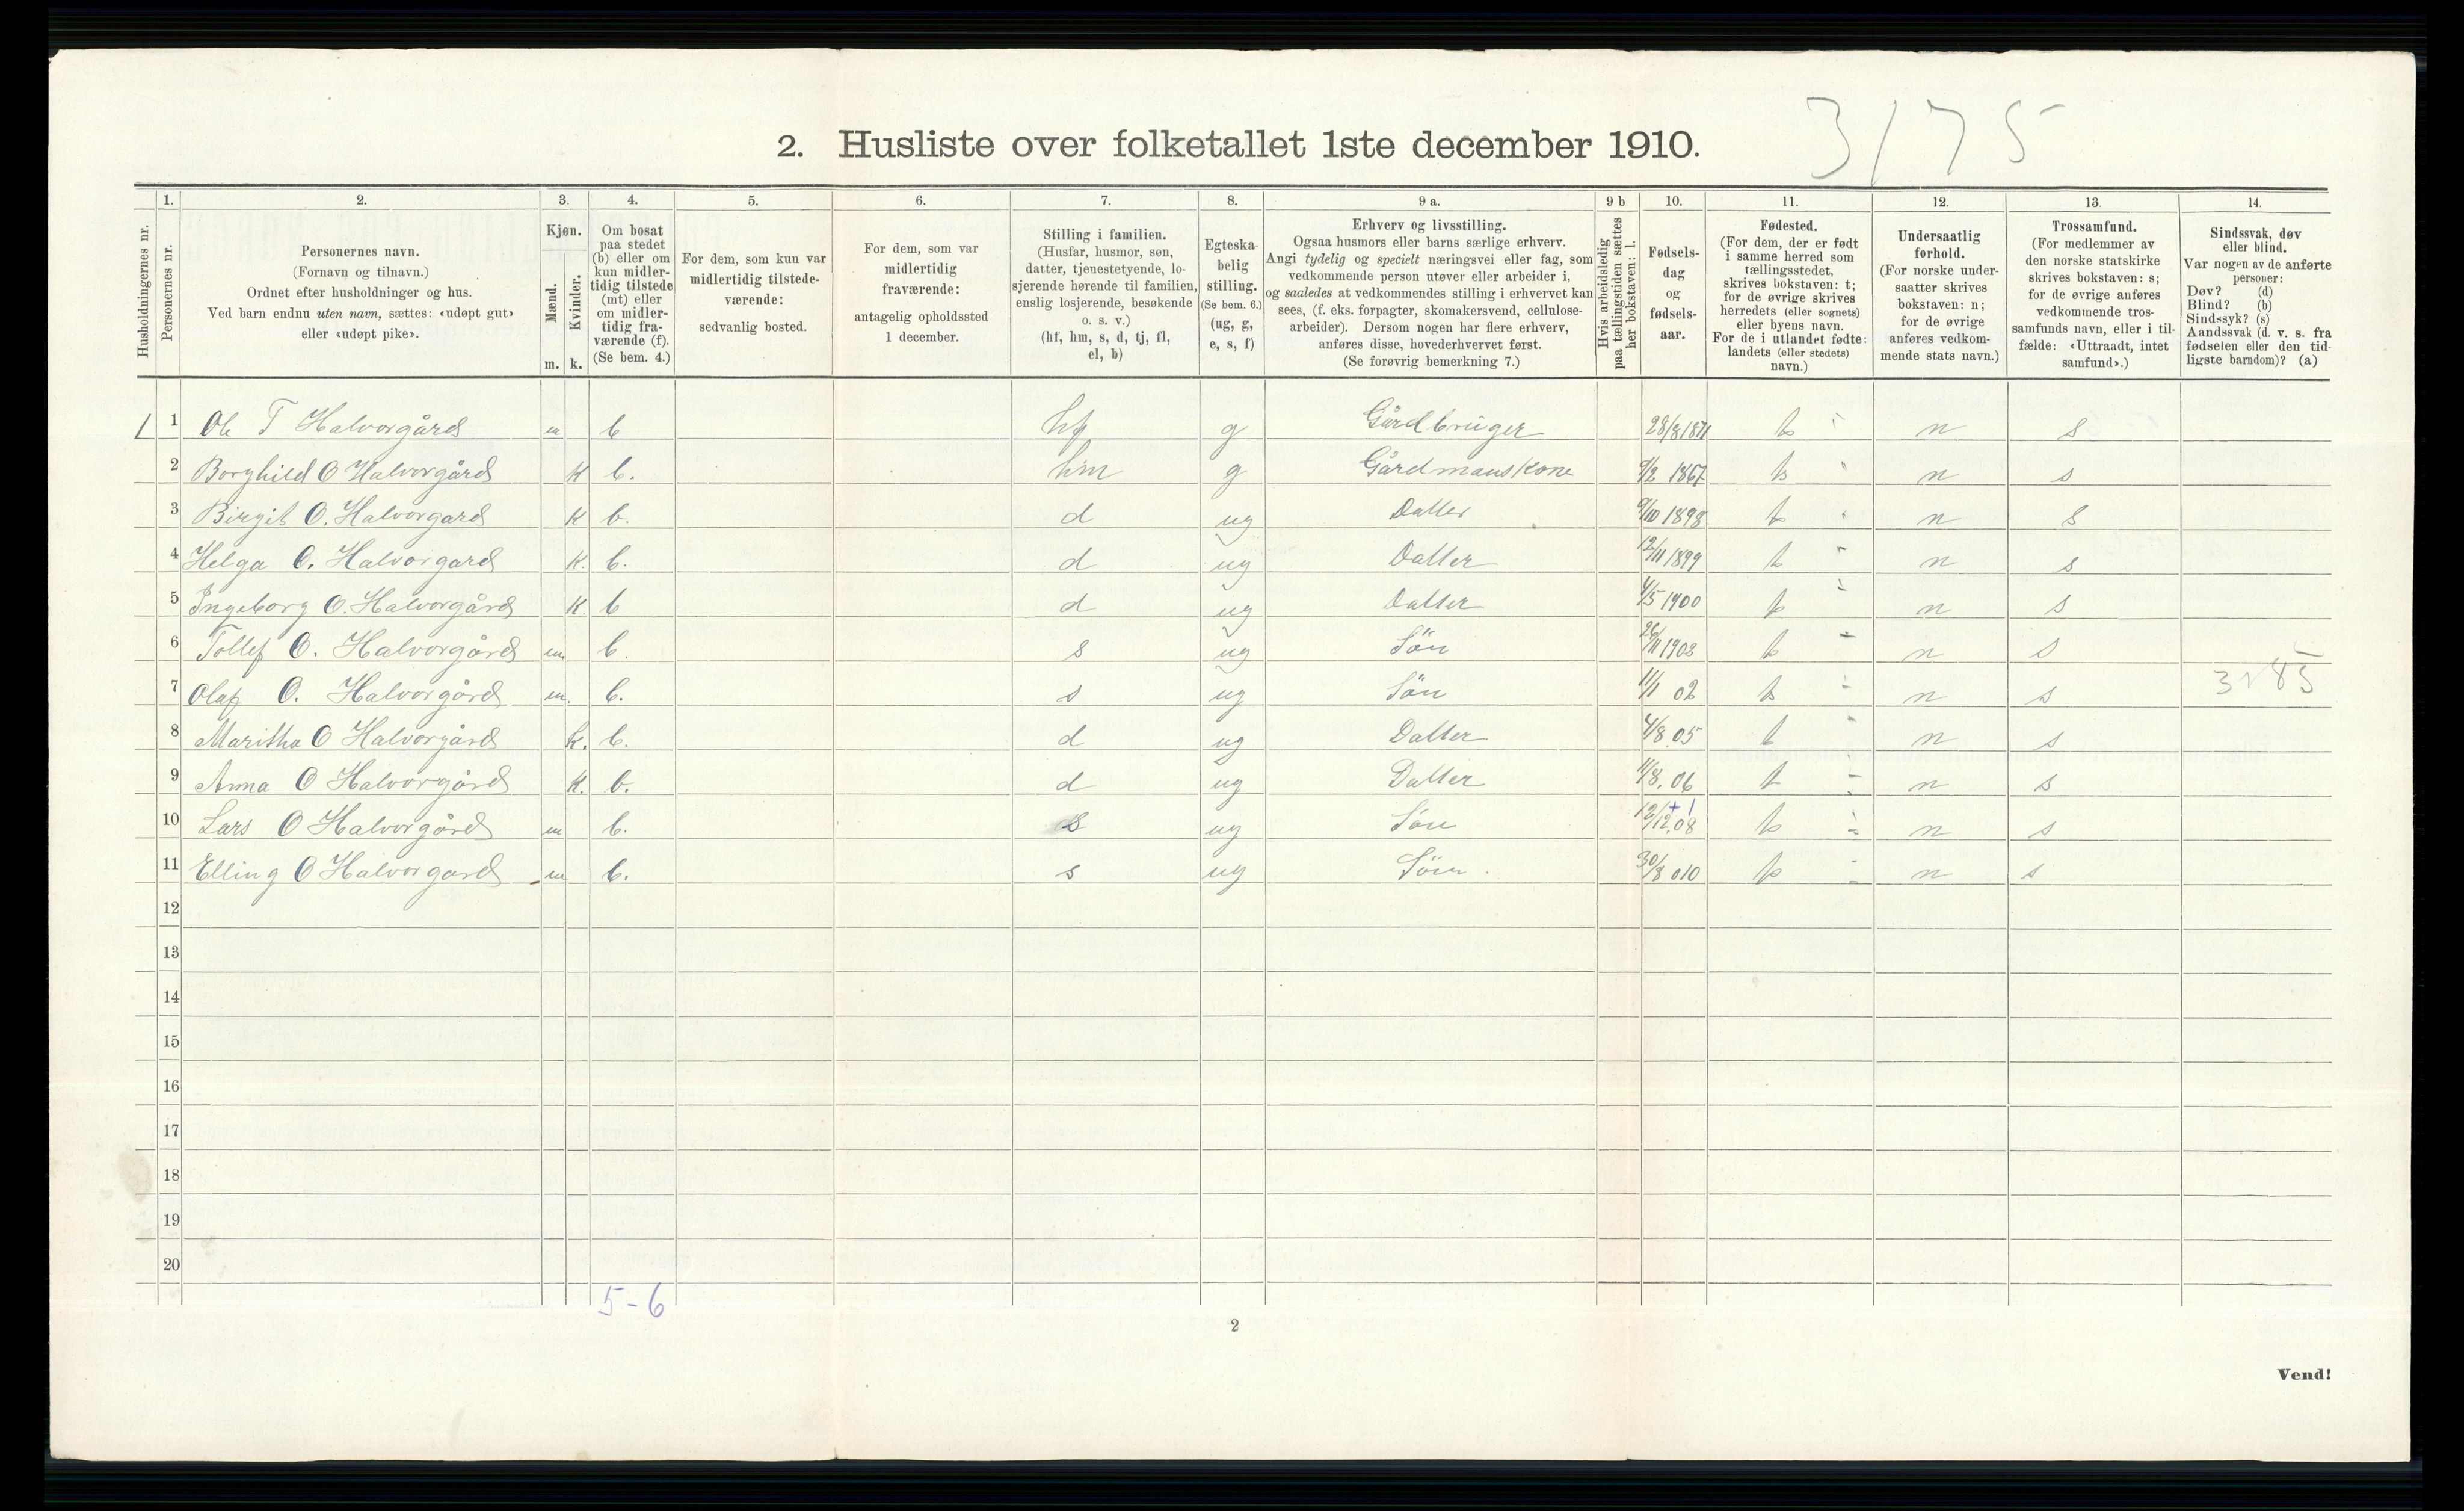 3175
2. Husliste over folketallet 1ste december 1910.
Husholdningernes nr.
1.
Personernes nr.
2.
Personernes navn.
(Fornavn og tilnavn.)
Ordnet efter husholdninger og hus.
Ved barn endnu uten navn, sættes: «udøpt gut»
eller «udøpt pike».
3.
Kjøn.
Mænd.
Kvinder.
m. k.
4.
Om bosat
paa stedet
(b) eller om
kun midler-
tidig tilstede
(mt) eller
om midler-
tidig fra-
værende (f).
(Se bem. 4.)
5.
For dem, som kun var
midlertidig tilstede-
værende:
sedvanlig bosted.
6.
For dem, som var
midlertidig
fraværende:
antagelig opholdssted
1 december.
7.
Stilling i familien.
(Husfar, husmor, søn,
datter, tjenestetyende, lo-
sjerende hørende til familien,
enslig losjerende, besøkende
o. s. v.)
(hf, hm, s, d, tj, fl,
el, b)
8.
Egteska-
belig
stilling.
(Se bem. 6.)
(ug, g,
e, s, f)
9 a.
Erhverv og livsstilling.
Ogsaa husmors eller barns særlige erhverv.
Angi tydelig og specielt næringsvei eller fag, som
vedkommende person utøver eller arbeider i,
og saaledes at vedkommendes stilling i erhvervet kan
sees, (f. eks. forpagter, skomakersvend, cellulose-
arbeider). Dersom nogen har flere erhverv,
anføres disse, hovederhvervet først.
(Se forøvrig bemerkning 7.)
9 b
Hvis arbeidsledig
paa tællingstiden sættes
her bokstaven: l.
10.
Fødsels-
dag
og
fødsels-
aar.
11.
Fødested.
(For dem, der er født
i samme herred som
tællingsstedet,
skrives bokstaven: t;
for de øvrige skrives
herredets (eller sognets)
eller byens navn.
For de i utlandet fødte:
landets (eller stedets)
navn.)
12.
Undersaatlig
forhold.
(For norske under-
saatter skrives
bokstaven: n;
for de øvrige
anføres vedkom-
mende stats navn.)
13.
Trossamfund.
(For medlemmer av
den norske statskirke
skrives bokstaven: s;
for de øvrige anføres
vedkommende tros-
samfunds navn, eller i til-
fælde: «Uttraadt, intet
samfund».)
14.
Sindssvak, døv
eller blind.
Var nogen av de anførte
personer:
Døv? (d)
Blind? (b)
Sindssyk? (s)
Aandssvak (d. v. s. fra
fødselen eller den tid-
ligste barndom)? (a)
1 1 Ole T Halvorgård m b hf g Gårdbruger 28/8 1871 t n s
2 Borghild O Halvorgård K b. hm g Gårdmanskone 9/2 1867 t n s
3 Birgit O. Halvorgard K b. d ug Datter 9/10 1898 t n s
4 Helga O. Halvorgard K. b. d ug Datter 12/11 1899 t n s
5 Ingeborg O. Halvorgård K. b d ug Datter 4/5 1900 t n s
6 Tollef O. Halvorgård m b. s ug Sön 26/11 1903 t n s
7 Olaf O. Halvorgård m. b. s ug Sön 11/1 02 t n s
8 Maritha O Halvorgård k. b. d ug Datter 4/8 05 t n s
9 Anna O Halvorgård K. b. d ug Datter 11/8. 06 t n s
10 Lars O Halvorgård m b. s ug Sön 12/12.08 t n s
11 Elling O Halvorgard m b. s ug Sön. 30/8 010 t n s
12
13
14
15
16
17
18
19
20
5-6
2
Vend!